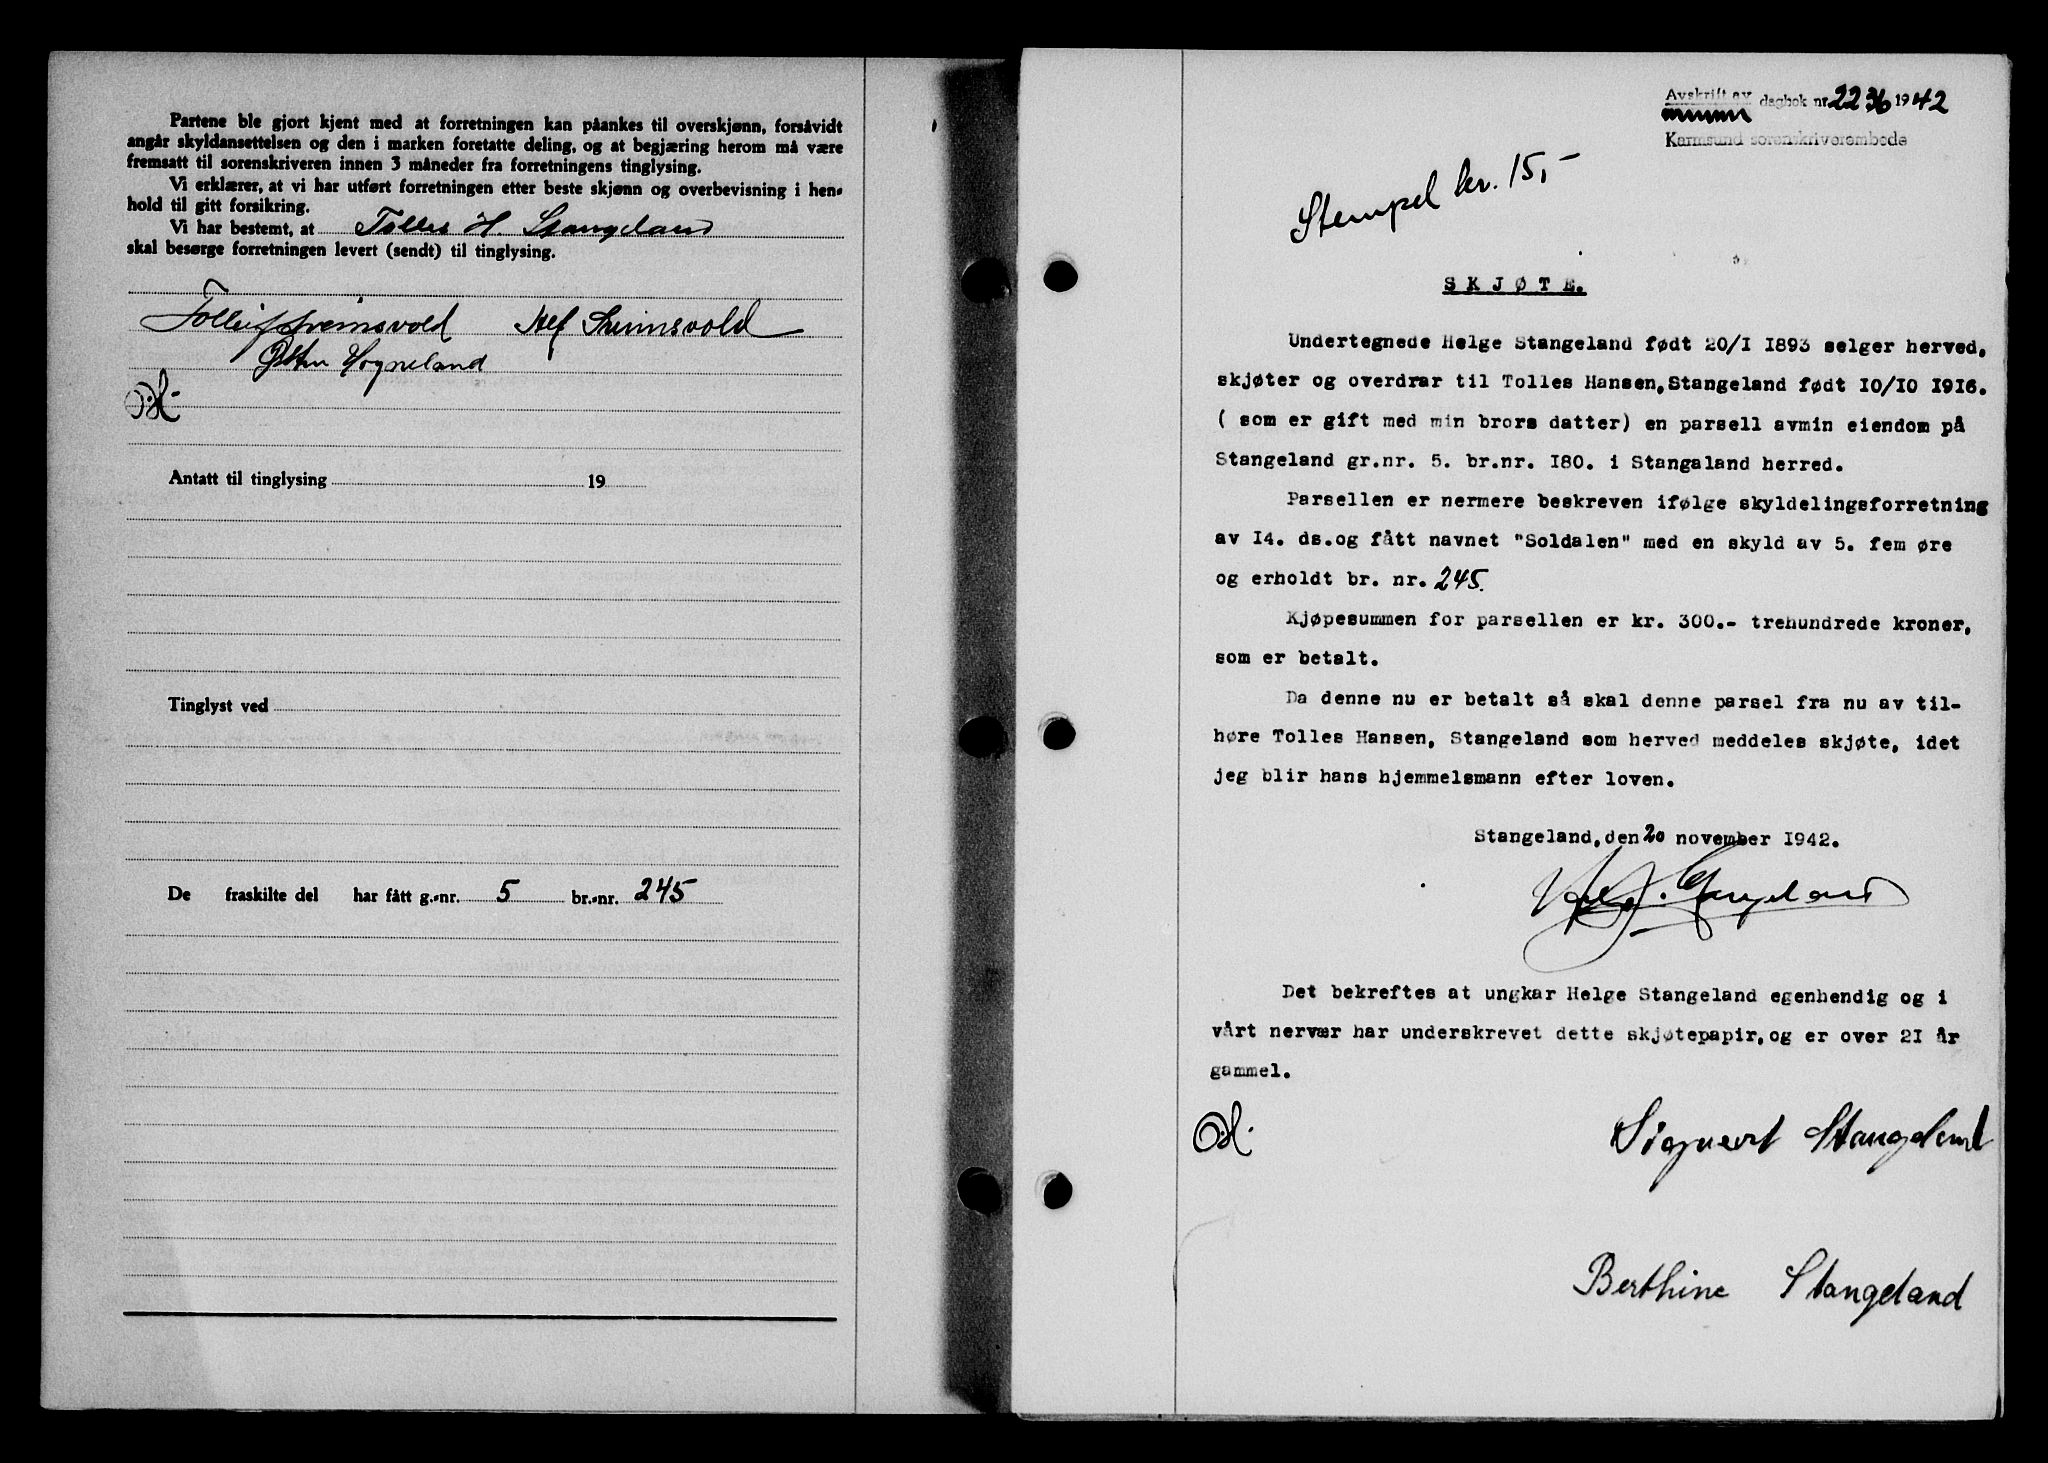 Partene ble gjort kjent med at forretningen kan påankes til overskjønn, forsåvidt
angår skyldansettelsen og den i marken foretatte deling, og at begjæring herom må være
fremsatt til sorenskriveren innen 3 måneder fra forretningens tinglysing.
Vi erklærer, at vi har utført forretningen etter beste skjønn og overbevisning i hen-
hold til gitt forsikring.
Vi har bestemt, at Tolles H. Stangeland
skal besørge forretningen levert (sendt) til tinglysing.
Tolleif Sveinsvold Alf Sveinsvold
Høyneland
Antatt til tinglysing 19
Tinglyst ved
De fraskilte del har fått g.-nr. 5 br.-nr. 245
Avskrift av dagbok nr. 2236 1942
Karmsund sorenskriverembede
Stempel kr. 15,-
SKJØTE.
Undertegnede Helge Stangeland født 20/I 1893 selger herved,
skjøter og overdrar til Tolles Hansen, Stangeland født 10/10 1916.
( som er gift med min brors datter) en parsell avmin eiendom på
Stangeland gr.nr. 5. br.nr. 180. i Stangaland herred.
Parsellen er nermere beskreven ifølge skyldelingsforretning
av 14. ds.og fått navnet "Soldalen" med en skyld av 5. fem øre
og erholdt br. nr. 245.
Kjøpesummen for parsellen er kr. 300.- trehundrede kroner,
som er betalt.
Da denne nu er betalt så skal denne parsel fra nu av til-
høre Tolles Hansen, Stangeland som herved meddeles skjøte, idet
jeg blir hans hjemmelsmann efter loven.
Stangeland, den 20 november 1942.
Helge Stangeland
Det bekreftes at ungkar Helge Stangeland egenhendig og i
vårt nervær har underskrevet dette skjøtepapir, og er over 21 år
gammel.
Sigvart Stangeland
Berthine Stangeland